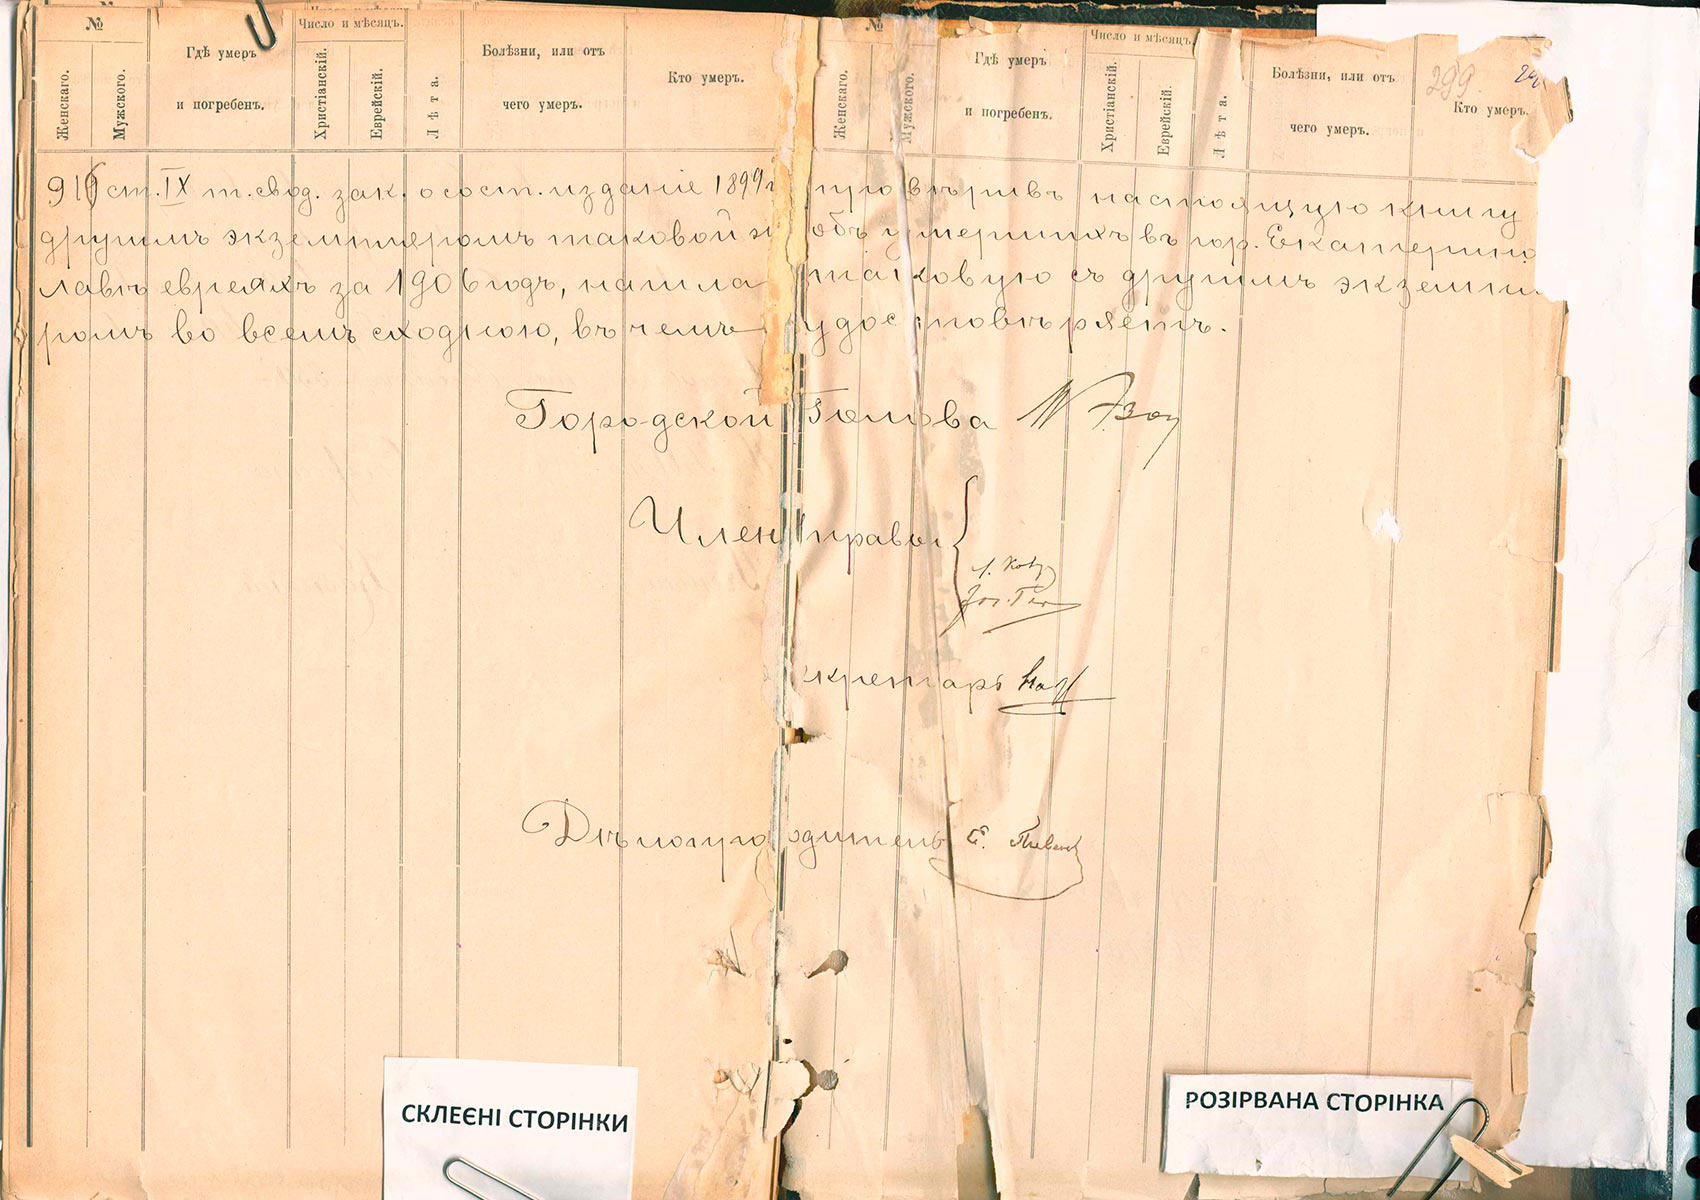 №
Число и мѣсяцъ.
Гдѣ умеръ
и погребенъ.
Болѣзни, или отъ
чего умеръ.
Кто умеръ.
Женскаго.
Мужского.
Христіанскій.
Еврейскій.
Лѣта.
№
Число и мѣсяцъ.
Гдѣ умеръ
и погребенъ.
Болѣзни, или отъ
чего умеръ.
Кто умеръ.
Женскаго.
Мужского.
Христіанскій.
Еврейскій.
Лѣта.
299
ст. IX т. свод. зак. о сост. изданіе 1899 г провѣривъ настоящую книгу
другимъ экземпляромъ таковой объ умершихъ въ гор. Екатерино
славѣ евреяхъ за 1906 годъ, нашла таковую съ другимъ экземпля
ромъ во всемъ сходною, въ чемъ удостовѣряетъ.
Городской Голова
Член управы
кретарь
Дѣлопроизводитель Е.
СКЛЕЄНІ СТОРІНКИ
РОЗІРВАНА СТОРІНКА